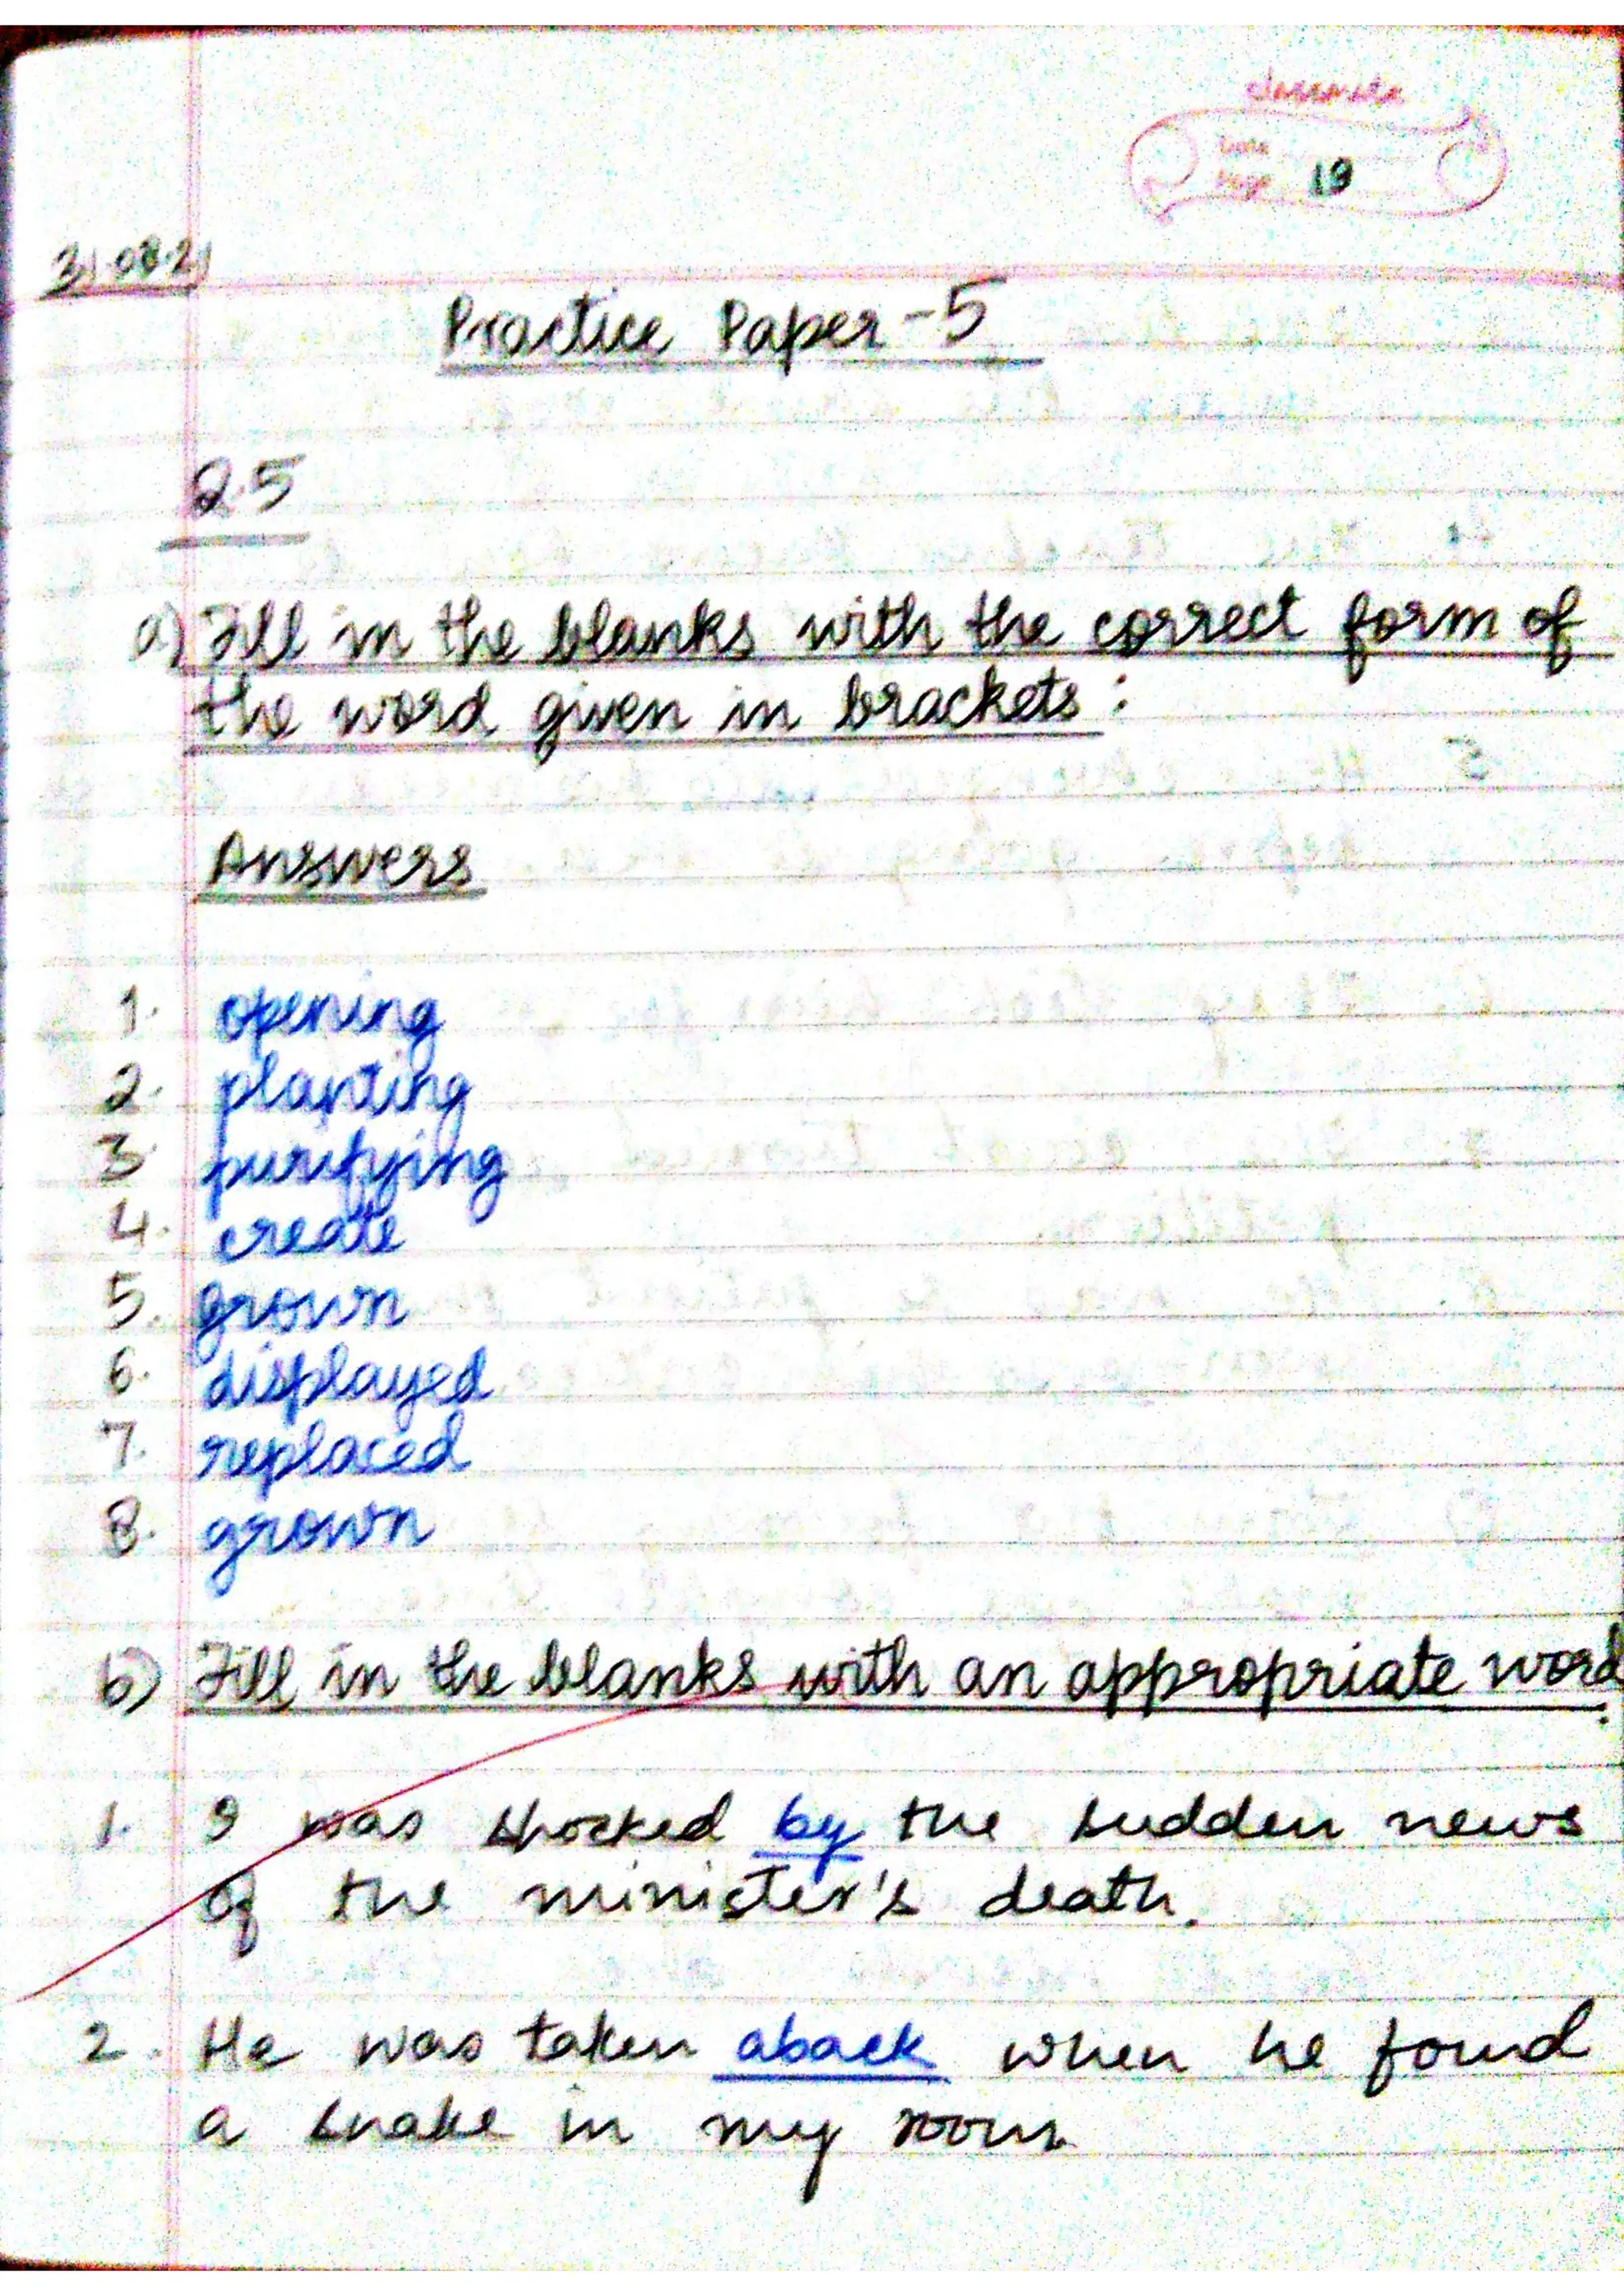 classmate
Date
Page 19
31.08.21
Practice Paper-5
Q.5
a) Fill in the blanks with the correct form of
the word given in brackets:
Answers
1. opening
2. planting
3. purifying
4. create
5. grown
6. displayed
7. replaced
8. grown
b) Fill in the blanks with an appropriate word:
1. I was shocked by the sudden news
of the minister's death.
2. He was taken aback when he found
a snake in my room.